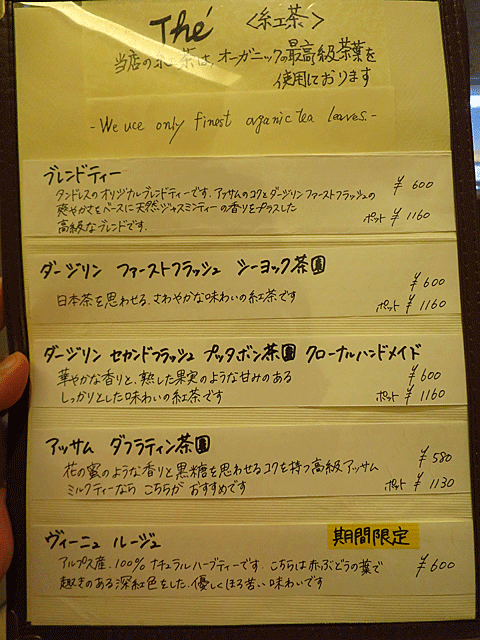 Thé 〈紅茶〉
当店の紅茶は、オーガニックの最高級茶葉を
使用しております
- We uce only finest organic tea leaves. -
ブレンドティー
タンドレスのオリジナルブレンドティーです。アッサムのコクとダージリンファーストフラッシュの ¥600
爽やかさをベースに天然ジャスミンティーの香りをプラスした ポット ¥1160
高級なブレンドです。
ダージリン ファーストフラッシュ シーヨック茶園
¥600
日本茶を思わせる、さわやかな味わいの紅茶です ポット ¥1160
ダージリン セカンドフラッシュ プッタボン茶園 クローナルハンドメイド
華やかな香りと、熟した果実のような甘みのある ¥600
しっかりとした味わいの紅茶です ポット ¥1160
アッサム ダフラティン茶園
花の蜜のような香りと黒糖を思わせるコクを持つ高級アッサム ¥580
ミルクティーなら こちらが おすすめです ポット ¥1130
ヴィーニュ ルージュ 期間限定
アルプス産、100% ナチュラルハーブティーです。こちらは赤ぶどうの葉で ¥600
趣きのある深紅色をした、優しくほろ苦い味わいです